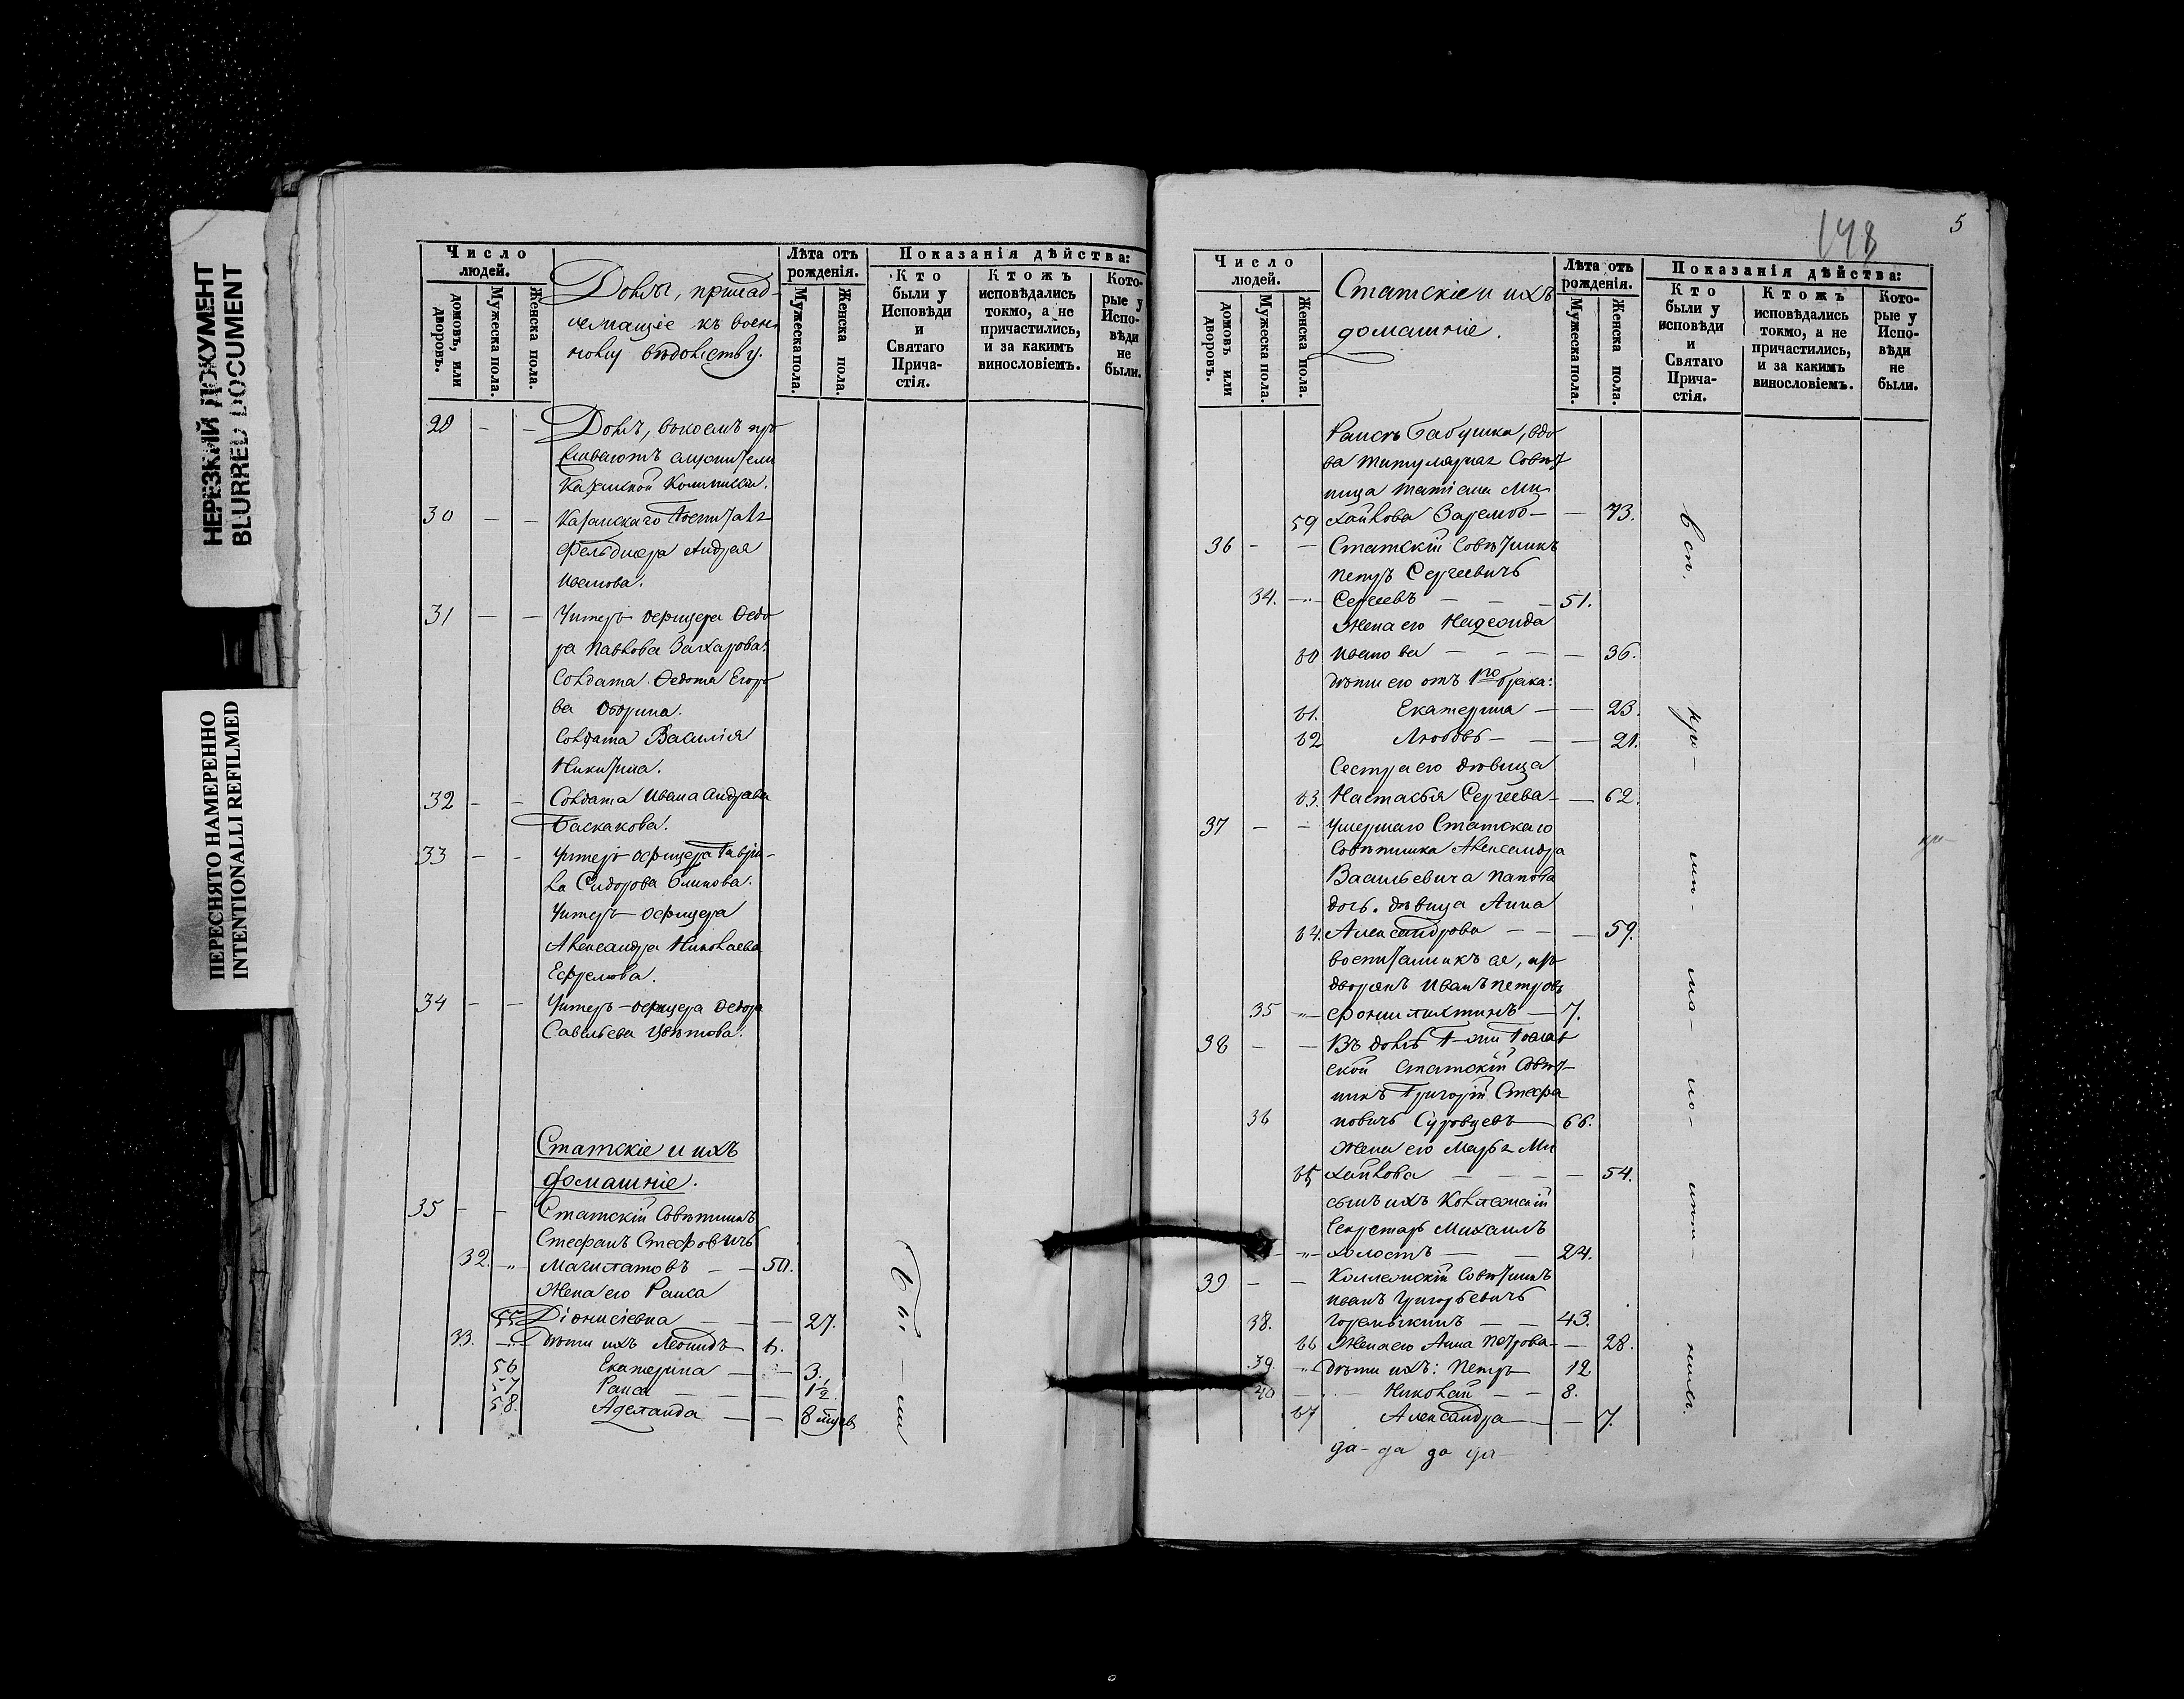 НЕРЕЗКИЙ ДОКУМЕНТ
BLURRED DOCUMENT
ПЕРЕСНЯТО НАМЕРЕННО
INTENTIONALLI REFILMED
Число людей.
домовъ, или дворовъ.
Мужеска пола.
Женска пола.
Домы, принад-
лежащіе къ воен-
ному вѣдомству.
Лѣта отъ рожденія.
Мужеска пола.
Женска пола.
Показанія дѣйства:
Кто были у Исповѣди и Святаго Прича-стія.
Ктожъ исповѣдались токмо, а не причастились, и за какимъ винословіемъ.
Кото-рые у Испо-вѣди не были.
29 — — Домъ, въ коемъ про
живаютъ служители
Казанской Коммиссіи.
30 — — Казанскаго
Фельдшера Андрея
Иванова.
31 — — Унтеръ офицера Ѳедо
ра Павлова Захарова.
Солдата Ѳедота Егоро
ва
Солдата Василія
Никитина.
32 — — Солдата Ивана Андреева
Баскакова.
33 — — Унтеръ-офицера Гаври-
ла Сидорова Блинова.
Унтеръ-офицера
Александра Николаева
Ефремова.
34 — — Унтеръ-офицера Ѳедора
Савельева Цвѣтова.
Статскіе и ихъ
домашніе.
35 — — Статскій Совѣтникъ
Стефанъ Стефовичъ
32. " Магистатовъ — — 50.
Жена его Раиса
55 Діонисіевна — — — 27.
33. — Дѣти ихъ Леонидъ — 6.
56 Екатерина — — 3.
57 Раиса — — — 1½
58. Аделаида — — 8
Бы — ли
148
5
Число людей.
домовъ или дворовъ.
Мужеска пола.
Женска пола.
Статскіе и ихъ
домашніе.
Лѣта отъ рожденія.
Мужеска пола.
Женска пола.
Показанія дѣйства:
Кто были у исповѣди и Святаго Прича-стія.
Ктожъ исповѣдались токмо, а не причастились, и за какимъ винословіемъ.
Кото-рые у Испо-вѣди не были.
Раисы бабушка, вдо
ва титулярная Совѣт
ница Татіана Ми-
59 хайлова — — 73.
36 — — Статскій Совѣтникъ
Петръ Сергеевичъ
34. — Сергеевъ — — — 51.
Жена его Надежда
60 Иванова — — — — 36.
Дѣти его отъ 1го брака:
61. Екатерина — — 23.
62 Любовь — — — 21.
Сестра его дѣвица
63. Настасья Сергеева — — 62.
37 — — Умершаго Статскаго
Совѣтника Александра
Васильевича Панова
дочь дѣвица Анна
64. Александрова — — — 59.
воспитанникъ ея, изъ
дворянъ Иванъ Петровъ
35 " — — 7.
38 — — Въ домѣ Г-жи
ской Статскій Совѣт-
никъ Григорій Стефа
36 новичъ Суровцевъ — 66.
Жена его Марья Ми
65 хайлова — — — — 54.
сынъ ихъ Коллежскій
Секретарь Михаилъ
" холостъ — — 24.
39 — — Коллежскій Совѣтникъ
Иванъ Григорьевичъ
38. Горемыкинъ — — 43.
66 Жена его Анна Петрова — — 28.
39. " Дѣти ихъ: Петръ 12
40 — Николай — — 8.
67 Александра — — 7.
да- да да да-